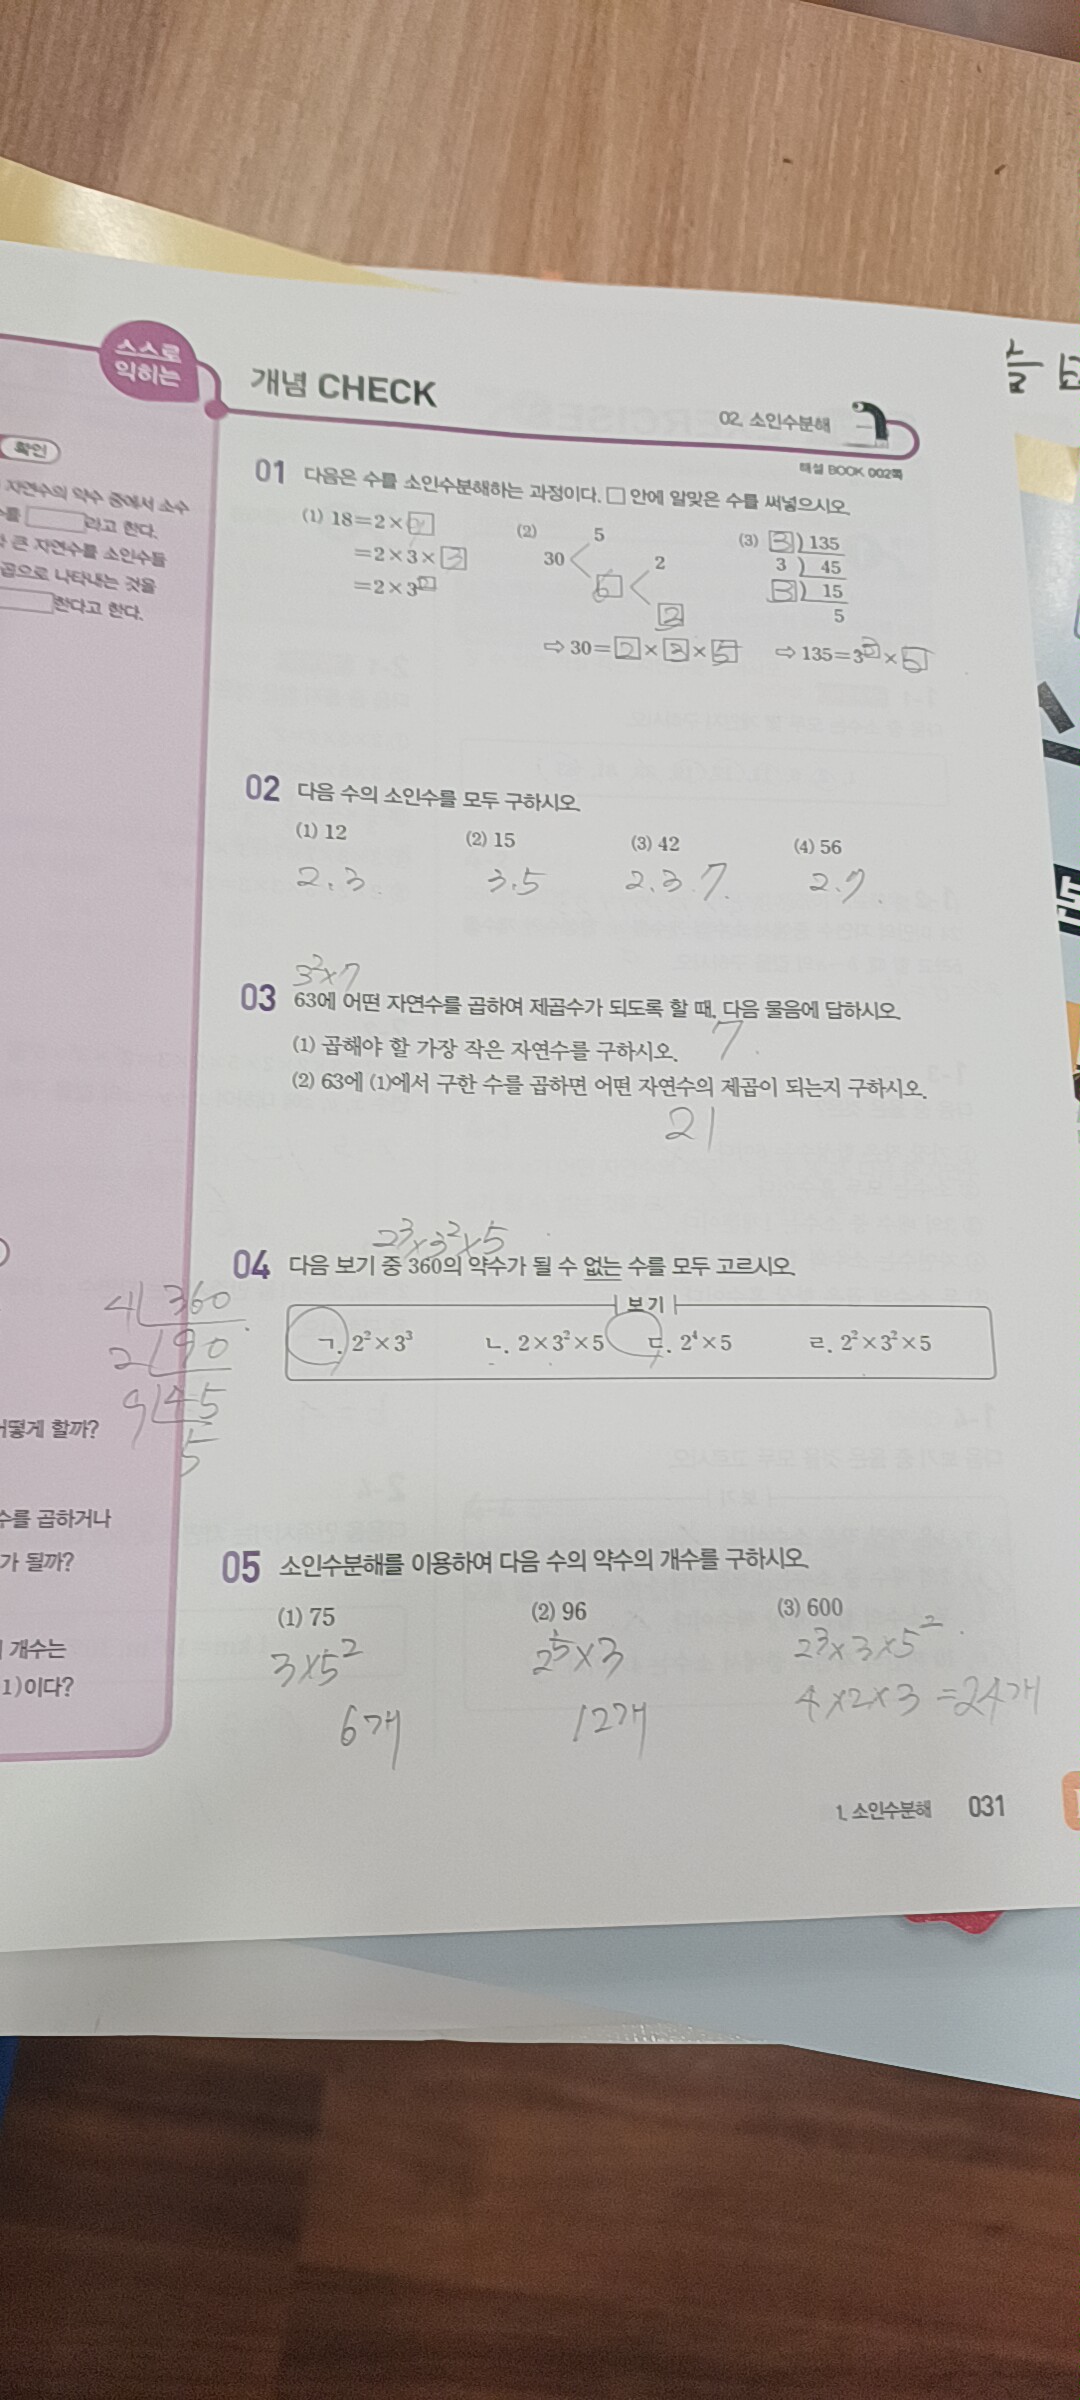 스스로
익히는
개념 CHECK
02. 소인수분해
해설 BOOK 002쪽
확인
자연수의 약수 중에서 소수
라고 한다.
큰 자연수를 소인수들
곱으로 나타내는 것을
한다고 한다.
어떻게 할까?
수를 곱하거나
가 될까?
개수는
1)이다?
01 다음은 수를 소인수분해하는 과정이다. □ 안에 알맞은 수를 써넣으시오.
(1) 18=2×
=2×3×3
=2×3²
(2) 30 5
6 2
3
⇨ 30=2×3×5
(3) 3) 135
3) 45
3) 15
5
⇨ 135=3³×5
02 다음 수의 소인수를 모두 구하시오.
(1) 12 (2) 15 (3) 42 (4) 56
2.3. 3.5 2.3.7. 2.7.
3²×7
03 63에 어떤 자연수를 곱하여 제곱수가 되도록 할 때, 다음 물음에 답하시오.
(1) 곱해야 할 가장 작은 자연수를 구하시오. 7.
(2) 63에 (1)에서 구한 수를 곱하면 어떤 자연수의 제곱이 되는지 구하시오.
21
2³×3²×5
04 다음 보기 중 360의 약수가 될 수 없는 수를 모두 고르시오.
보기
ㄱ. 2²×3³ ㄴ. 2×3²×5 ㄷ. 2⁴×5 ㄹ. 2²×3²×5
4 360
2 90
9 45
5
05 소인수분해를 이용하여 다음 수의 약수의 개수를 구하시오.
(1) 75 (2) 96 (3) 600
3×5² 2⁵×3 2³×3×5².
6개 12개 4×2×3=24개
1. 소인수분해 031